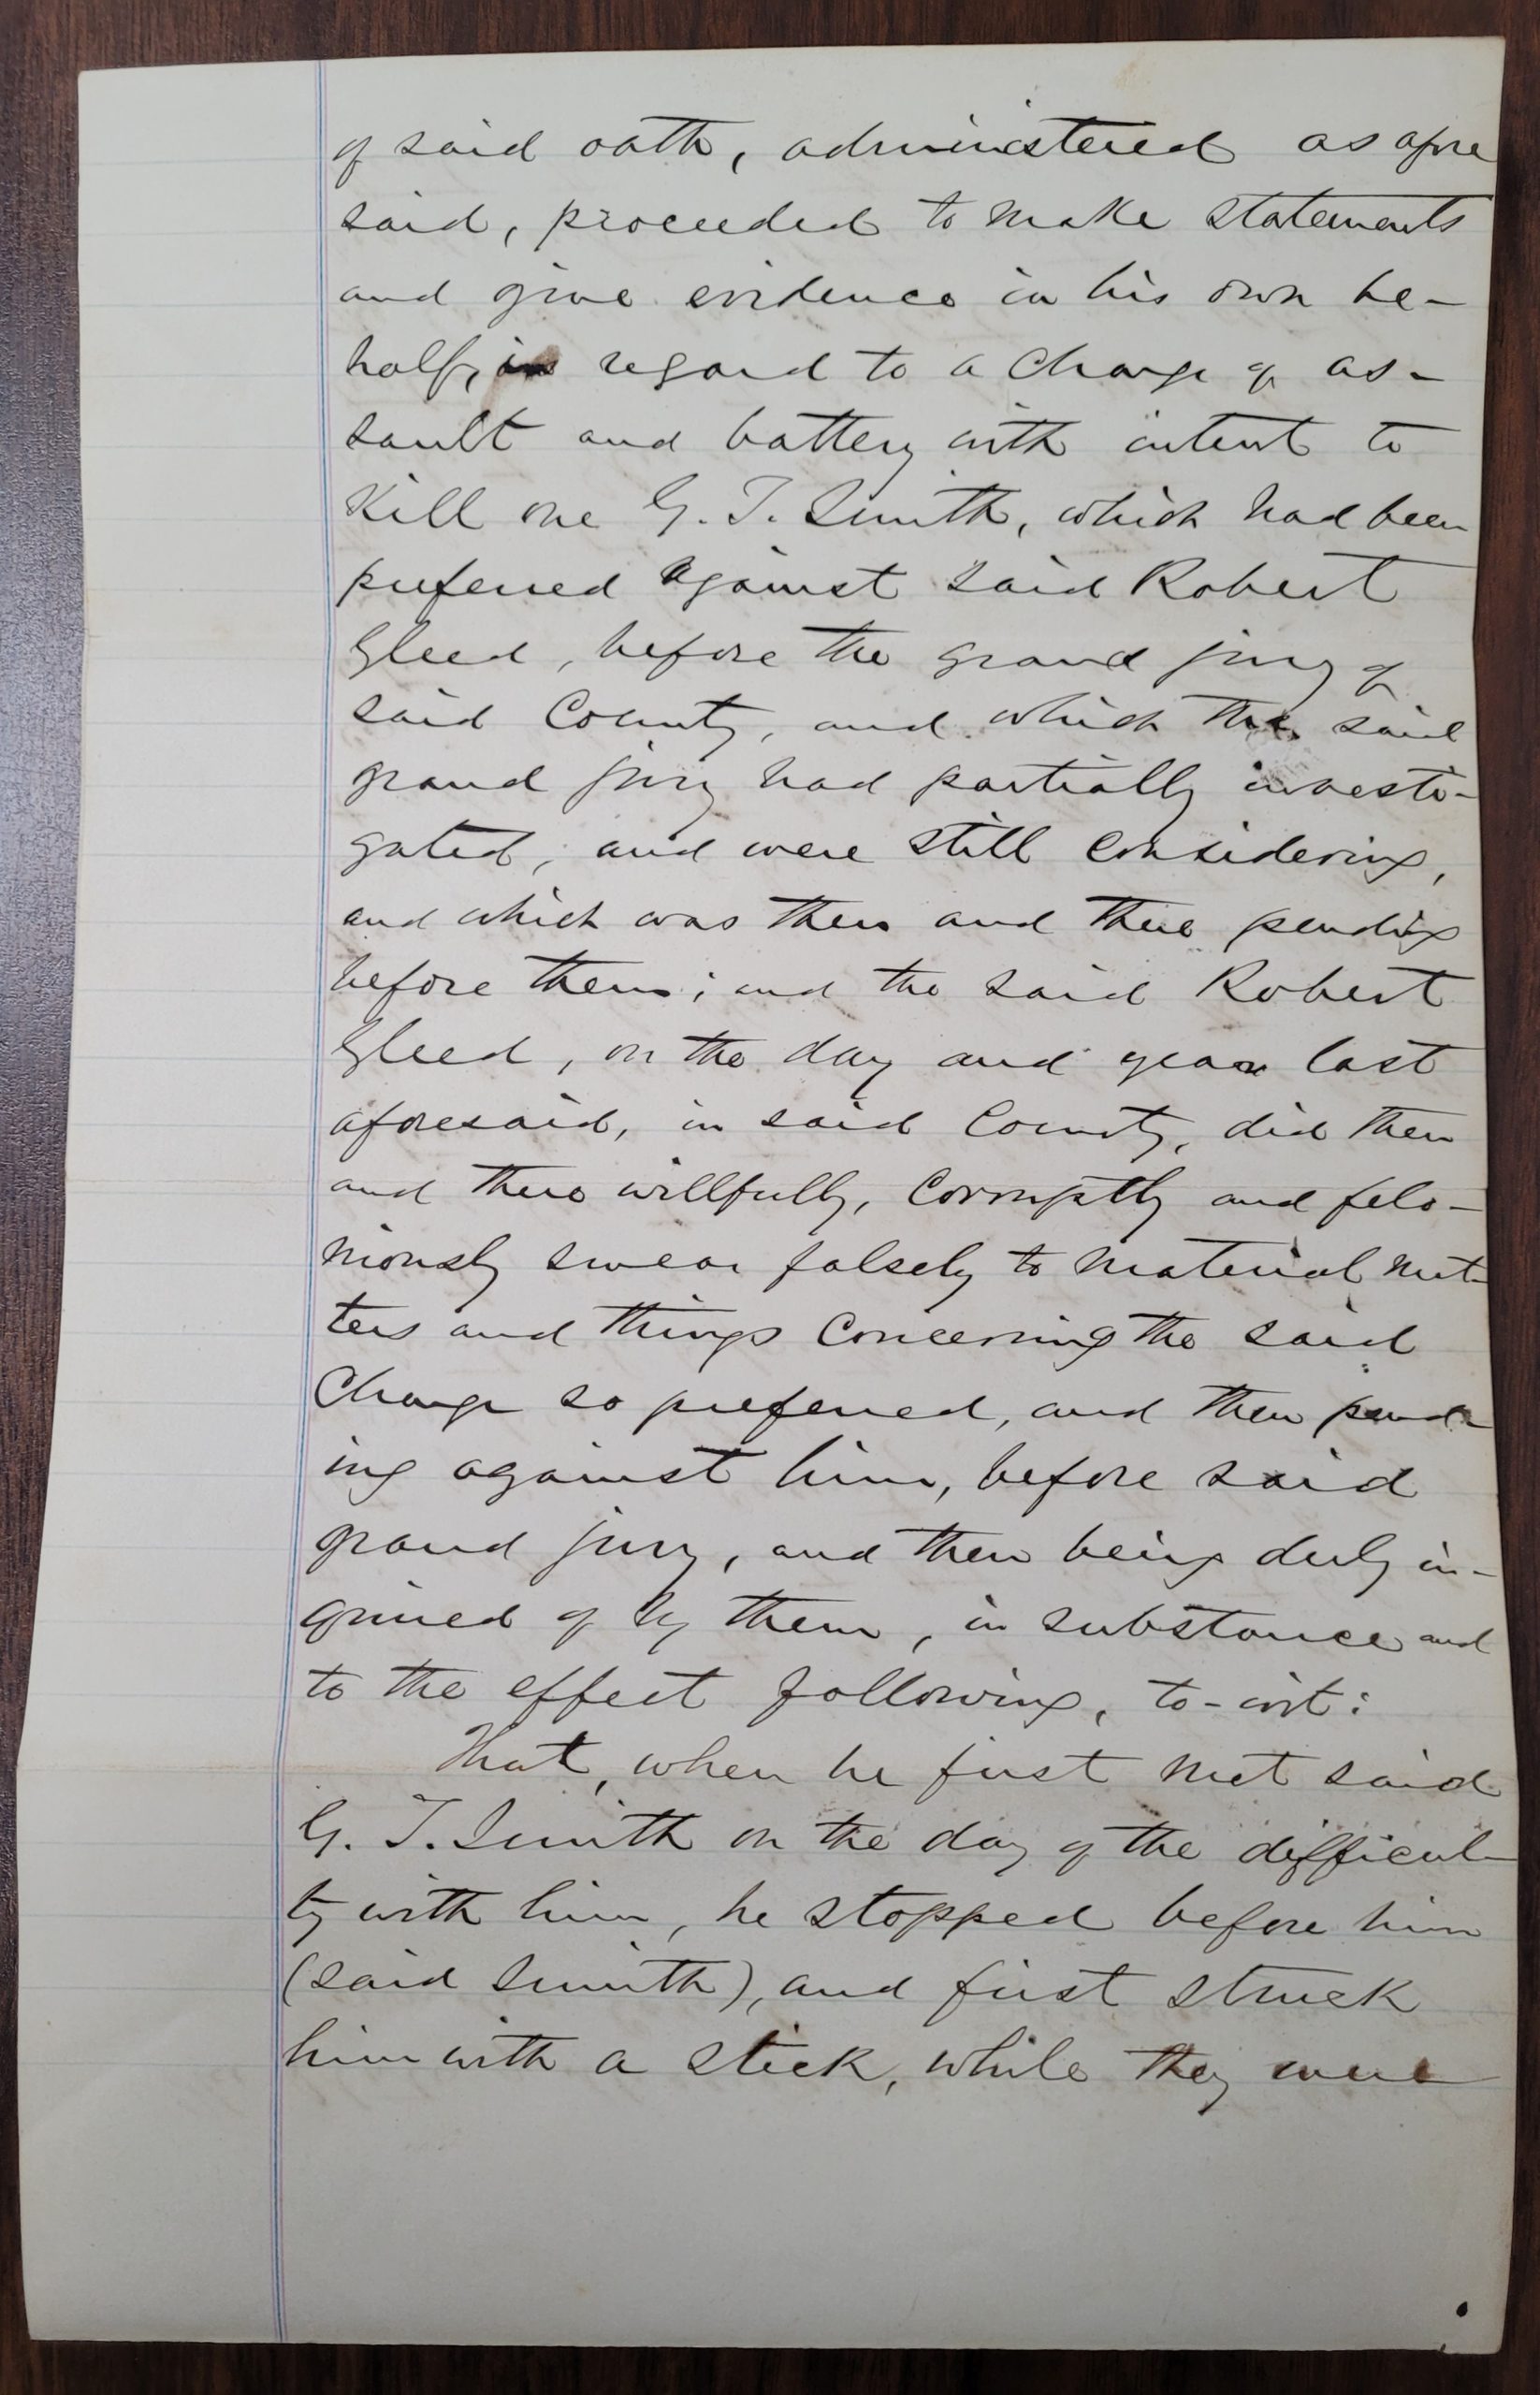 of said oath, administered as afore
said, proceeded to make statements
and give evidence in his own be-
half, in regard to a charge of as-
sault and battery with intent to
kill one G. T. Smith, which had been
preferred against said Robert
Gleed, before the grand jury of
said County, and which the said
grand jury had partially investi-
gated, and were still considering,
and which was then and there pending
before them; and the said Robert
Gleed, on the day and year last
aforesaid, in said County, did then
and there willfully, corruptly and felo-
niously swear falsely to material mat-
ters and things concerning the said
charge so preferred, and then pend-
ing against him, before said
grand jury, and then being duly in-
quired of by them, in substance and
to the effect following, to-wit:
That, when he first met said
G. T. Smith on the day of the difficul-
ty with him, he stopped before him
(said Smith), and first struck
him with a stick, while they were